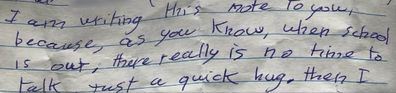 I am writing this note to you,
because, as you know, when school
is out, there really is no time to
talk just a quick hug, then I